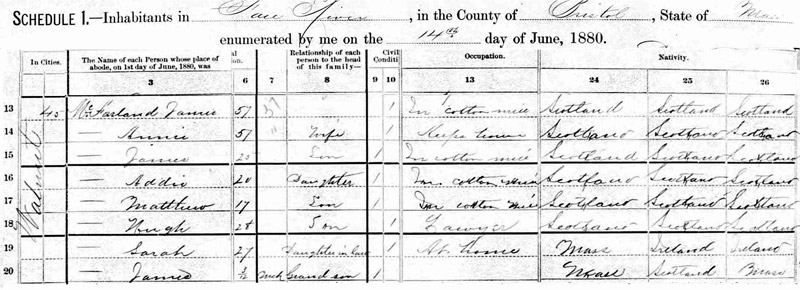 SCHEDULE 1.—Inhabitants in Fall River, in the County of Bristol, State of Mass
enumerated by me on the 14th day of June, 1880.
In Cities. The Name of each Person whose place of abode, on 1st day of June, 1880, was Relationship of each person to the head of this family— Civil Conditi Occupation. Nativity.
3 6 7 8 9 10 13 24 25 26
Walnut
13 45 McFarland James 57 1 In cotton mill Scotland Scotland Scotland
14 — Annie 57 Wife 1 Keeps house Scotland Scotland Scotland
15 — James Son 1 In cotton mill Scotland Scotland Scotland
16 — Addie 20 Daughter 1 In cotton mill Scotland Scotland Scotland
17 — Matthew 17 Son 1 In cotton mill Scotland Scotland Scotland
18 — Hugh 28 Son 1 Lawyer Scotland Scotland Scotland
19 — Sarah 27 Daughter in law 1 At home Mass Ireland Ireland
20 — James Grand son 1 Mass Scotland Mass